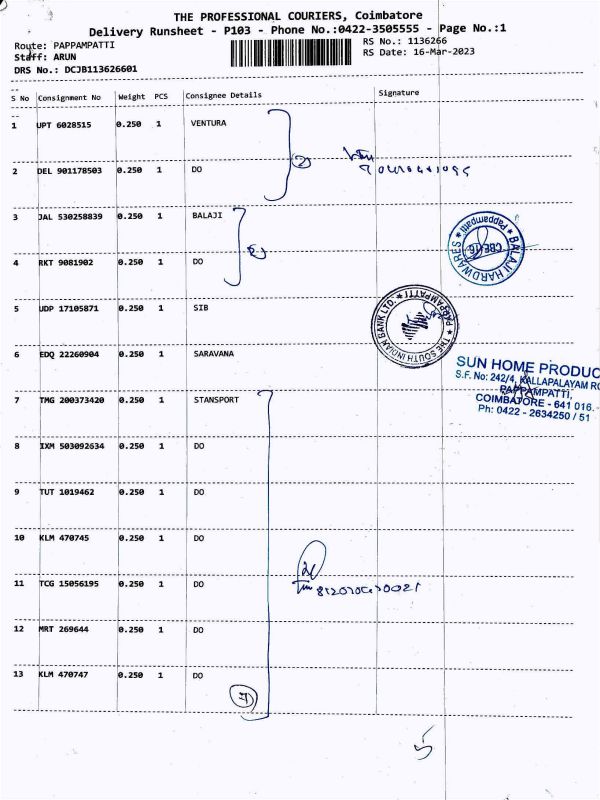 THE PROFESSIONAL COURIERS, Coimbatore
Delivery Runsheet - P103 - Phone No.:0422-3505555 - Page No.:1
Route: PAPPAMPATTI RS No.: 1136266
Staff: ARUN RS Date: 16-Mar-2023
DRS No.: DCJB113626601
S No Consignment No Weight PCS Consignee Details Signature
1 UPT 6028515 0.250 1 VENTURA
2 DEL 901178503 0.250 1 DO
3 JAL 530258839 0.250 1 BALAJI
4 RKT 9081902 0.250 1 DO
5 UDP 17105871 0.250 1 SIB
6 EDQ 22260904 0.250 1 SARAVANA
7 TMG 200373420 0.250 1 STANSPORT
8 IXM 503092634 0.250 1 DO
9 TUT 1019462 0.250 1 DO
10 KLM 470745 0.250 1 DO
11 TCG 15056195 0.250 1 DO
12 MRT 269644 0.250 1 DO
13 KLM 470747 0.250 1 DO
2
BALAJI HARDWARES * Pappampatti *
CBE-16
* THE SOUTH INDIAN BANK LTD. * PAPPAMPATTI
SUN HOME PRODUC
S.F. No: 242/4, KALLAPALAYAM RO
PAPPAMPATTI,
COIMBATORE - 641 016.
Ph: 0422 - 2634250 / 51
5